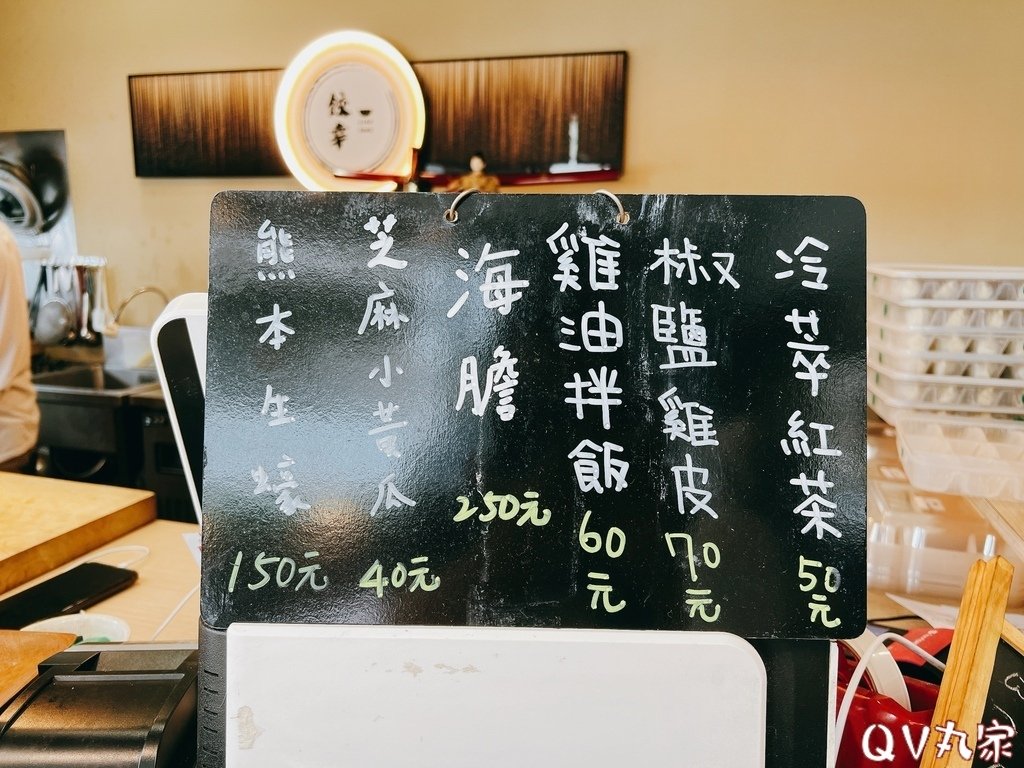 一
餃幸
冷萃紅茶 50元
椒鹽雞皮 70元
雞油拌飯 60元
海膽 250元
芝麻小黃瓜 40元
熊本生蠔 150元
QV丸家